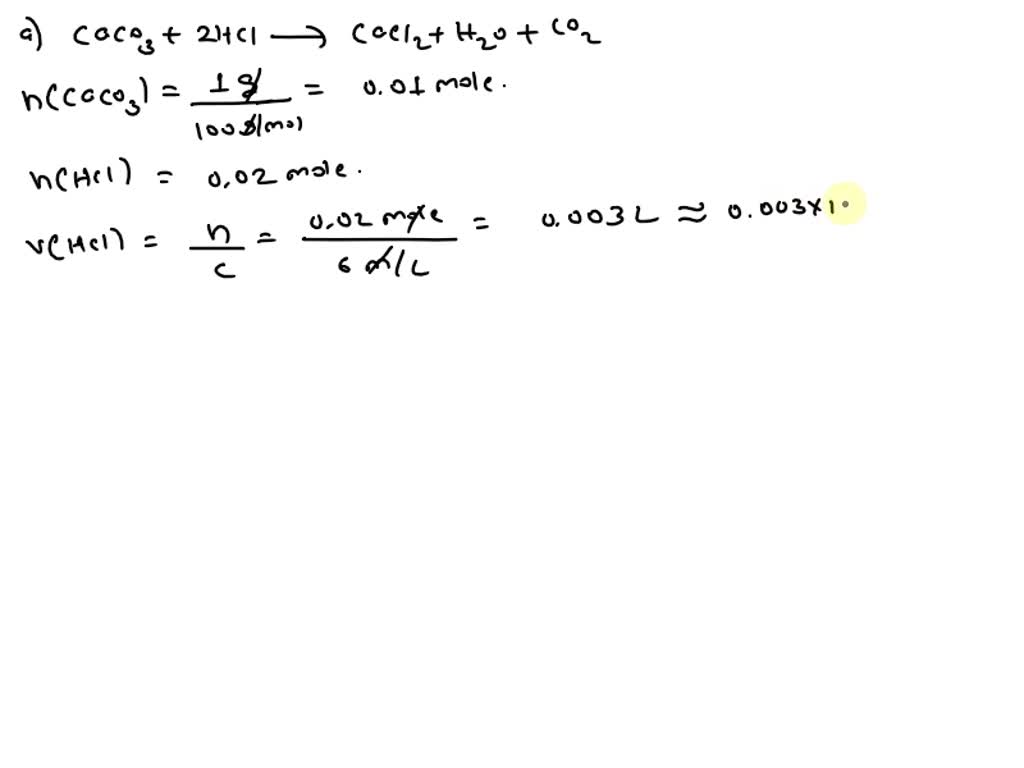 a) CaCO3 + 2HCl ⟶ CaCl2 + H2O + CO2
n(CaCO3) = 1 g / 100 g/mol = 0.01 mole.
n(HCl) = 0.02 mole.
v(HCl) = n / c = 0.02 mole / 6 m/L = 0.003 L ≈ 0.003×1